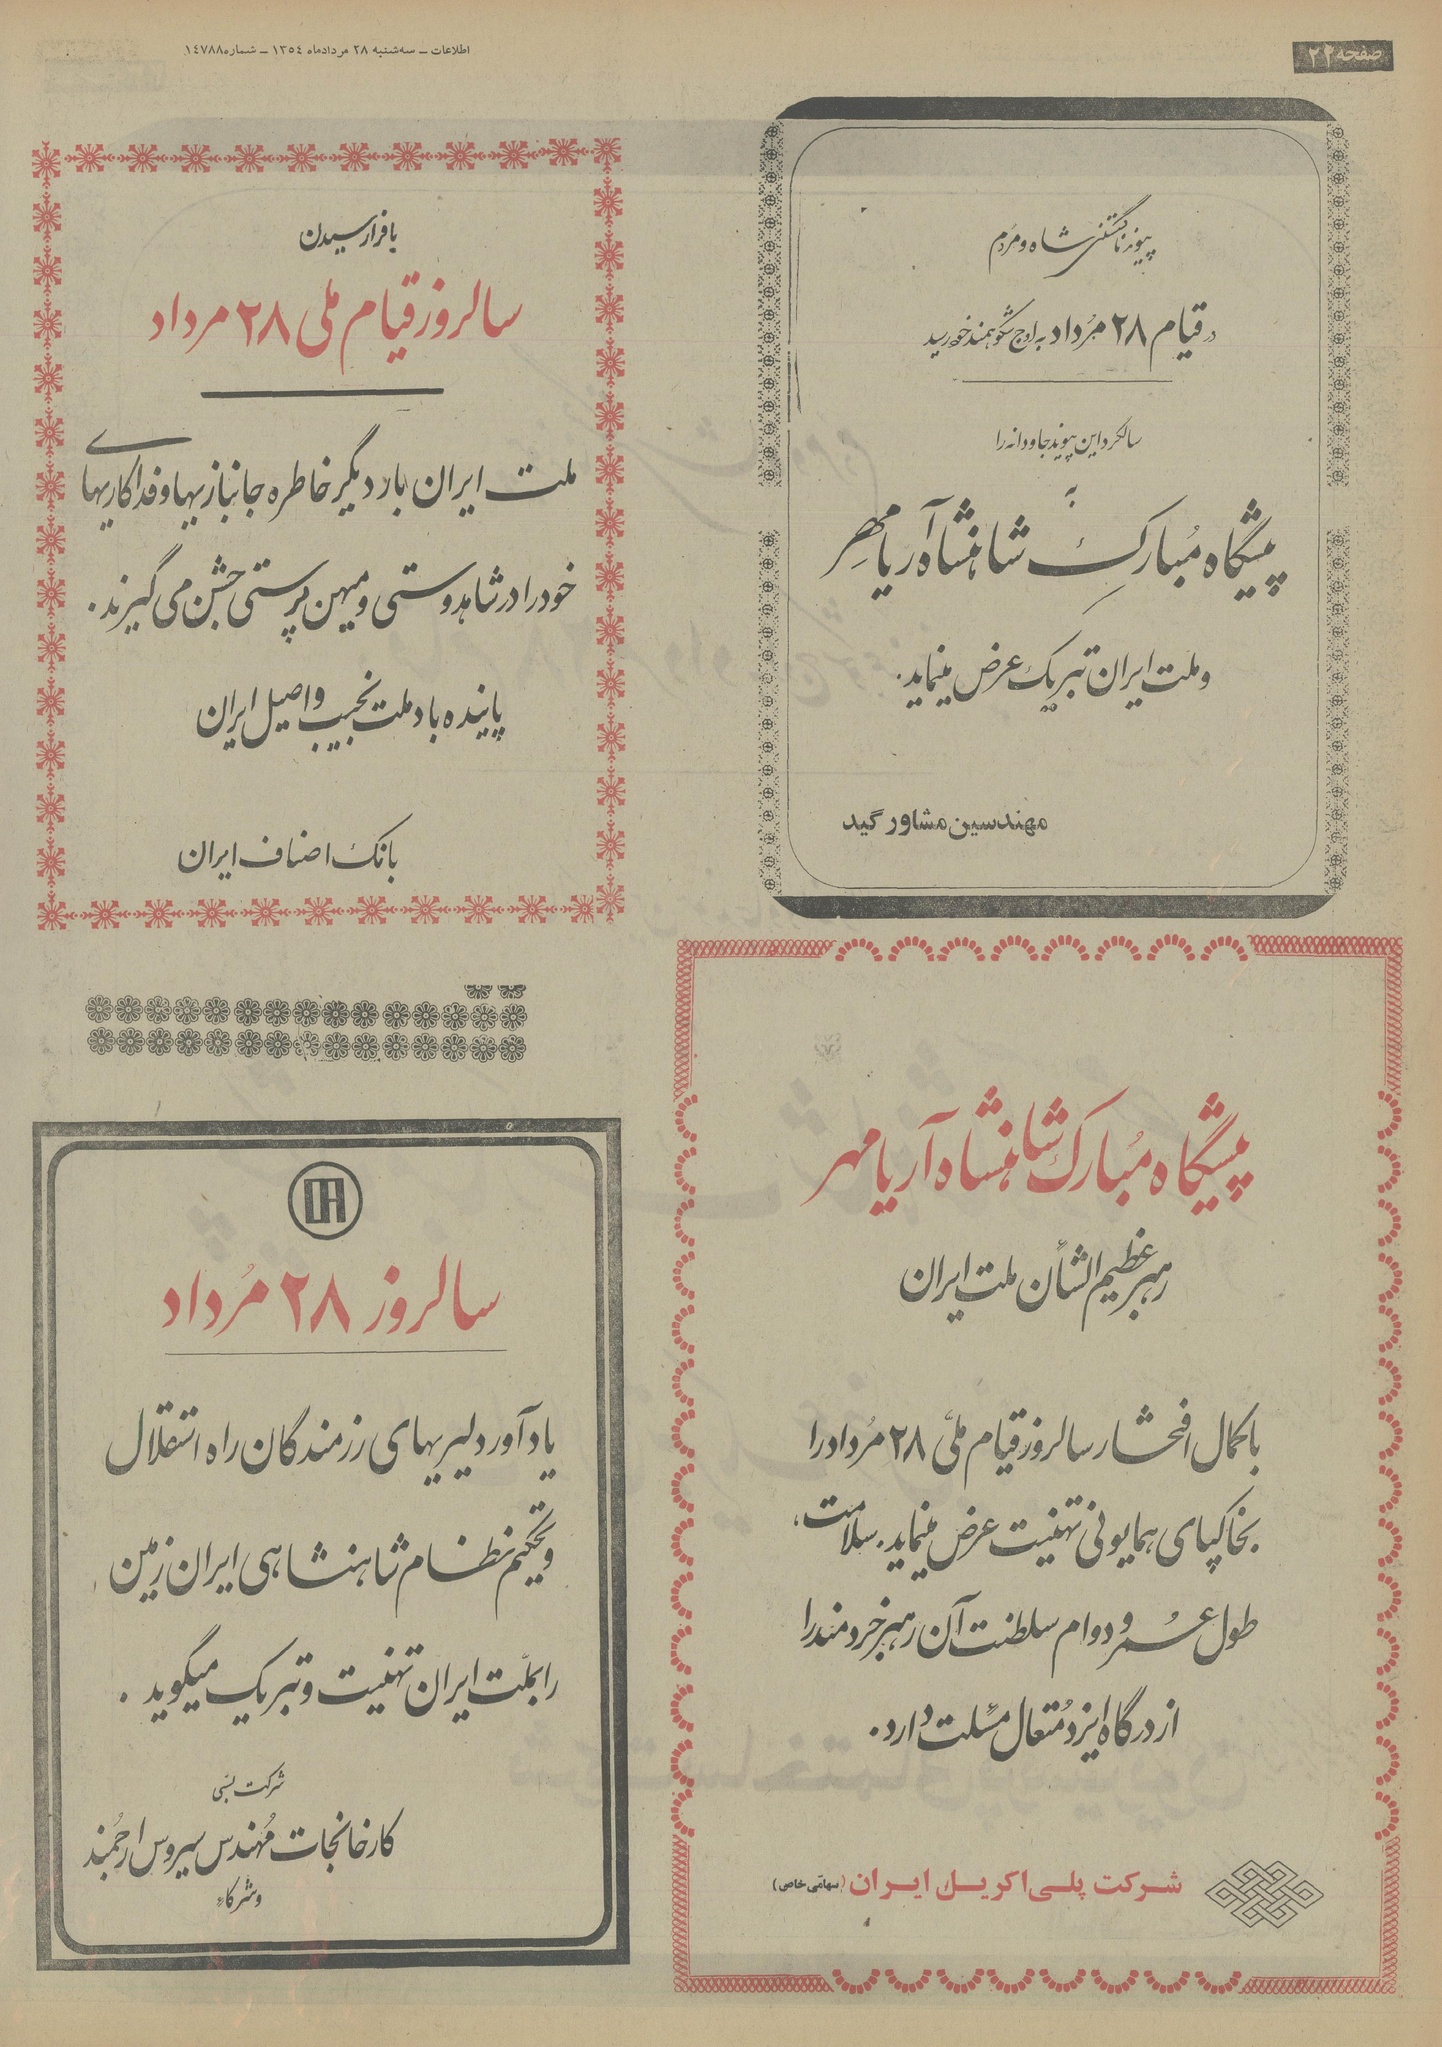 صفحه ۲۲
اطلاعات – سه‌شنبه ۲۸ مردادماه ۱۳۵۴ – شماره ۱۴۷۸۸
پیوند ناگسستنی شاه و مردم
در قیام ۲۸ مرداد به اوج شکوهمند خود رسید
سالگرد این پیوند جاودانه را
به
پیشگاه مبارک شاهنشاه آریامهر
و ملت ایران تبریک عرض مینماید.
مهندسین مشاور گید
با فرا رسیدن
سالروز قیام ملی ۲۸ مرداد
ملت ایران بار دیگر خاطره جانبازیها و فداکاریهای
خود را در شاهدوستی و میهن پرستی جشن می گیرند.
پاینده باد ملت نجیب و اصیل ایران
بانک اصناف ایران
پیشگاه مبارک شاهنشاه آریامهر
رهبر عظیم الشأن ملت ایران
با کمال افتخار سالروز قیام ملّی ۲۸ مرداد را
بخاکپای همایونی تهنیت عرض مینماید. سلامت،
طول عمر و دوام سلطنت آن رهبر خردمند را
از درگاه ایزد مُتعال مسئلت دارد.
شرکت پلی اکریل ایران (سهامی خاص)
سالروز ۲۸ مُرداد
یادآور دلیریهای رزمندگان راه استقلال
و تحکیم نظام شاهنشاهی ایران زمین
را بملّت ایران تهنیت و تبریک میگوید.
شرکت نسبی
کارخانجات مُهندس سیروس ارجمند
و شرکاء